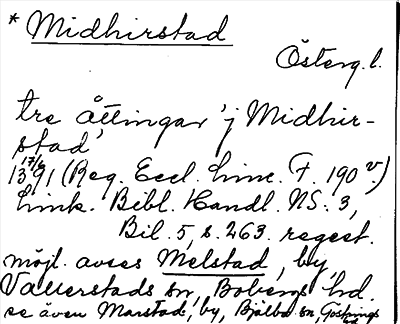 * Midhirstad
Österg.l.
tre åttingar 'j Midhir-
stad'
13 17/6 91 (Reg. Eccl. Linc. F. 190 v.)
Link. Bibl. Handl. NS: 3,
Bil. 5, s. 263. regest.
möjl. avses Melstad, by,
Vallerstads sn, Bobergs hd.
se även Marstad, by, Bjälbo sn, Göstrings
hd